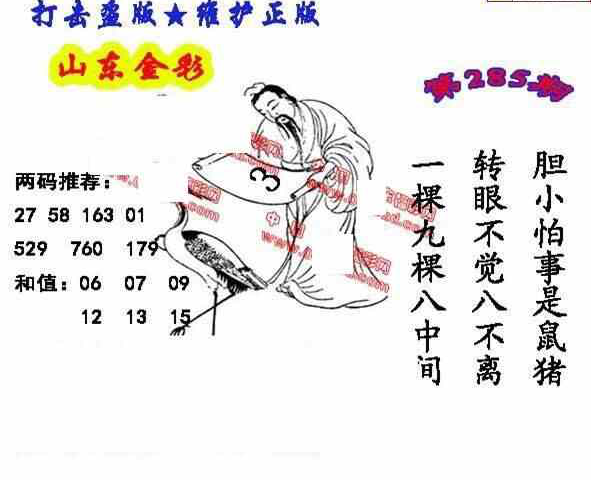 打击盗版★维护正版
山东金彩
第285期
两码推荐：
27 58 163 01
529 760 179
和值：06 07 09
12 13 15
3
胆小怕事是鼠猪
转眼不觉八不离
一棵九棵八中间
中